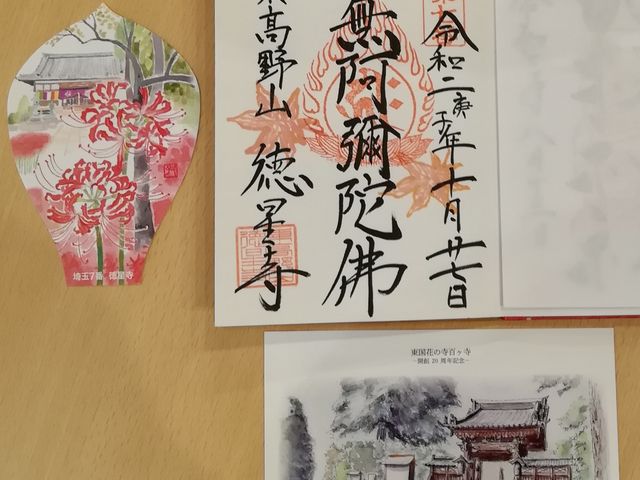 令和二庚
子年十月廿七日
無阿彌陀佛
高野山 徳星寺
埼玉7番 徳星寺
東国花の寺百ヶ寺
－開創 20 周年記念－